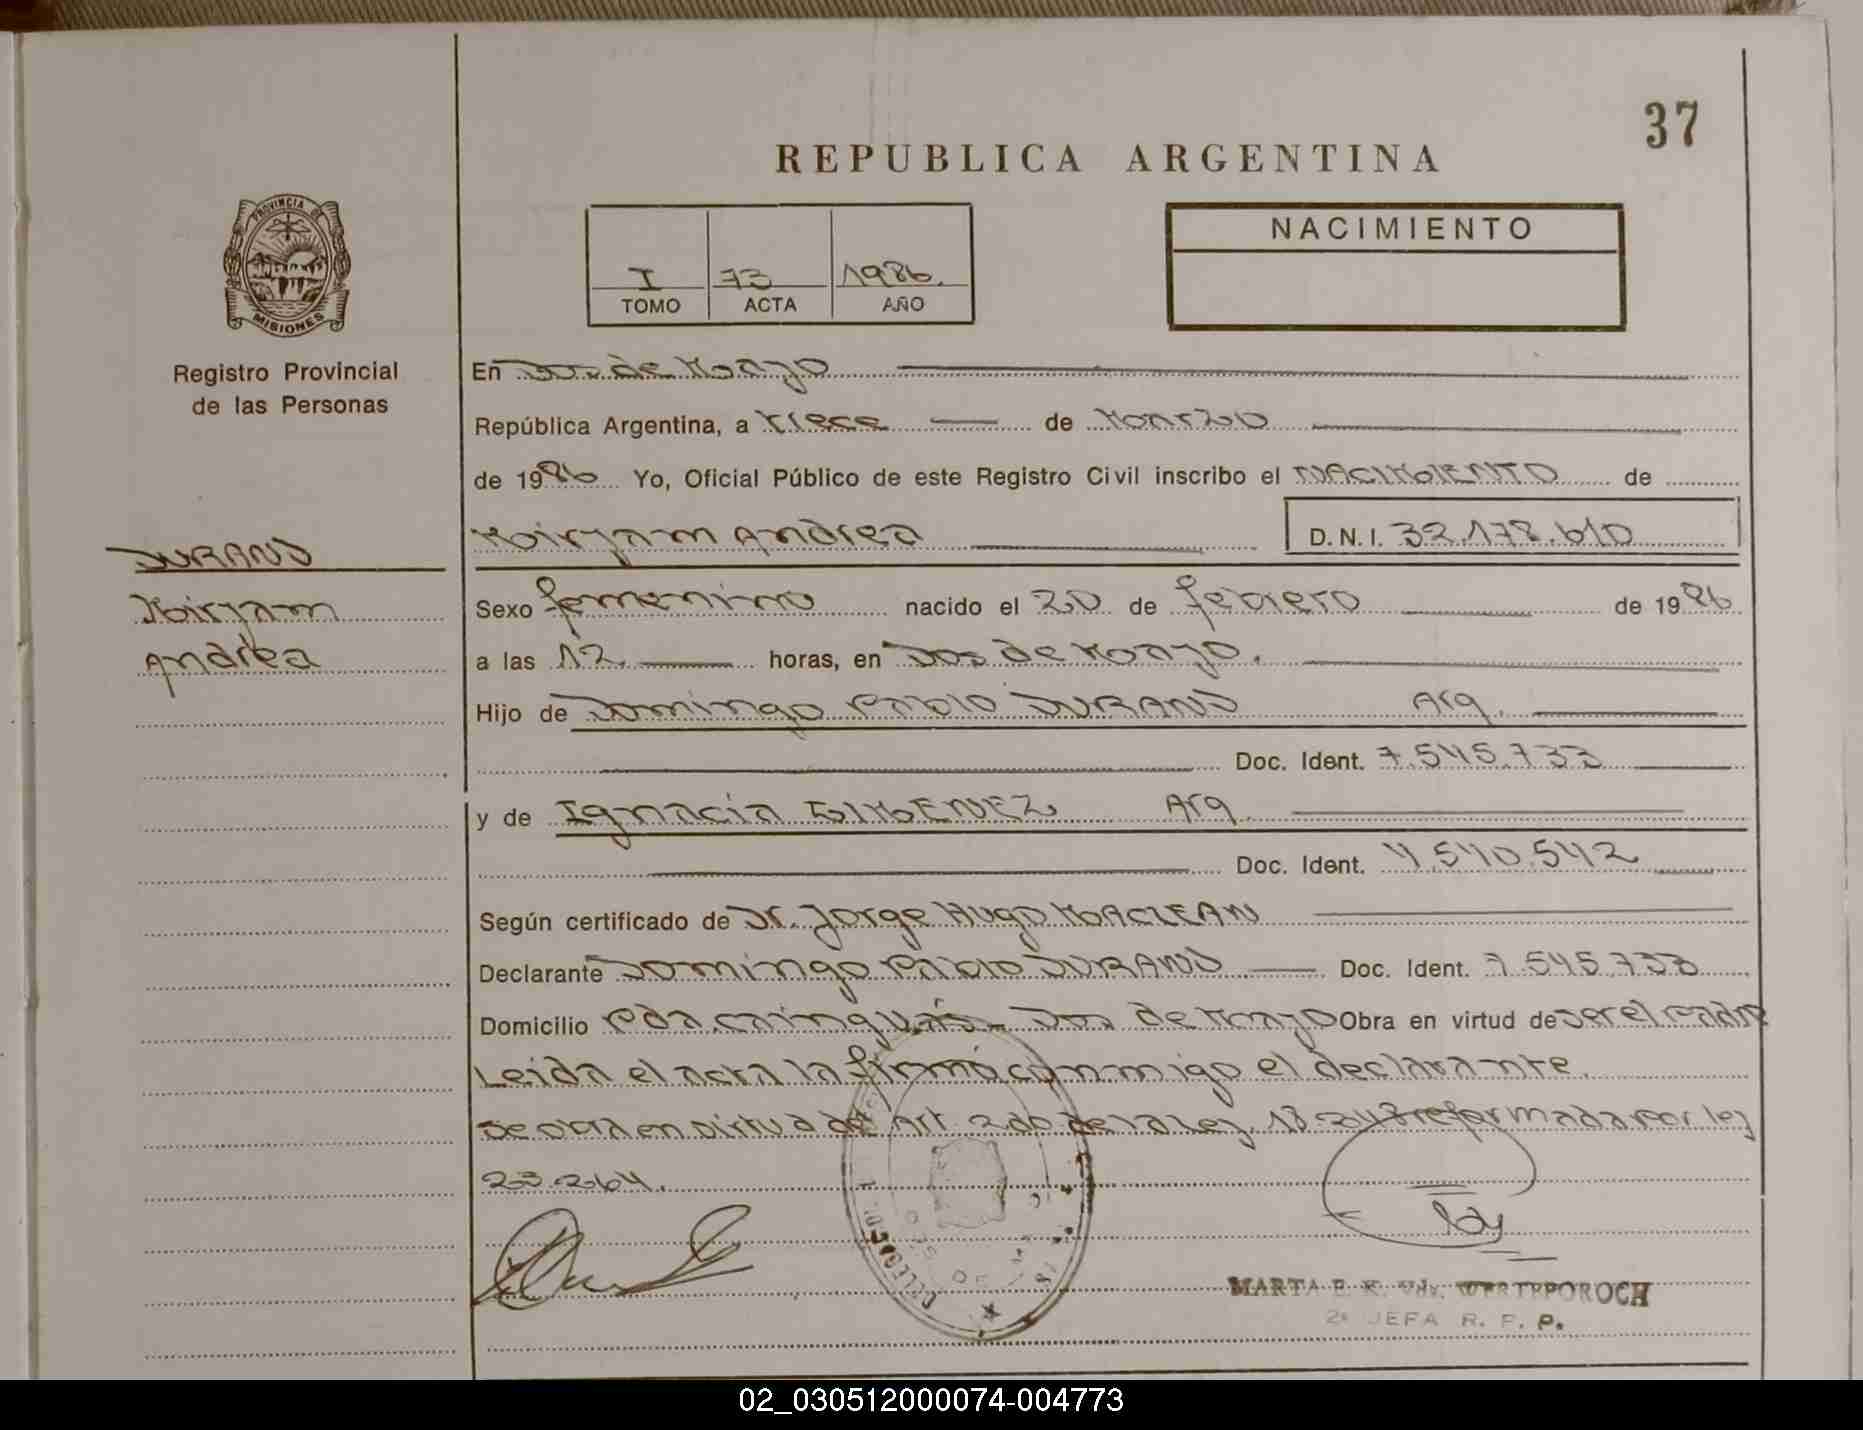 37
REPUBLICA ARGENTINA
PROVINCIA DE
MISIONES
Registro Provincial
de las Personas
I 73 1986.
TOMO ACTA AÑO
NACIMIENTO
En Dos de Mayo
República Argentina, a trece de Marzo
de 1986 Yo, Oficial Público de este Registro Civil inscribo el NACIMIENTO de
Mirjam Andrea D.N.I. 32.178.610
DURAND
Mirjam
Andrea
Sexo femenino nacido el 20 de febrero de 1986
a las 12 horas, en Dos de Mayo.
Hijo de Domingo Pablo DURAND Arg.
Doc. Ident. 7.545.733
y de Ignacia GIMENEZ Arg.
Doc. Ident. 4.540.542
Según certificado de Dr. Jorge Hugo MACLEAN
Declarante Domingo Pablo DURAND Doc. Ident. 7.545.733
Domicilio Pda. cainguás Dos de Mayo Obra en virtud de ser el Padre
Leida el acta la firmó conmigo el declarante.
Se obra en virtud de Art 2do de la Ley 18.248 reformada por ley
23.264.
MARTA E. K. Vda.
2º JEFA R. P. P.
02_030512000074-004773